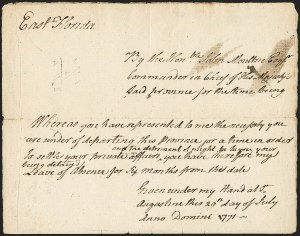 East Florida
By the Honble John Moultrie Esqr
Commander in Chief of His Majestys
Said Province for the time being
Whereas you have represented to me the necessity you
are under of departing this Province for a time in order
to settle your private affairs, you have therefore my
Leave of Absence for Six months from this date
Given under my Hand at St
Augustine this 29th day of July
Anno Domini 1771